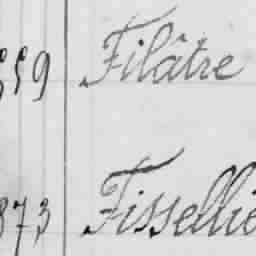 559 Filâtre
873 Fissellie